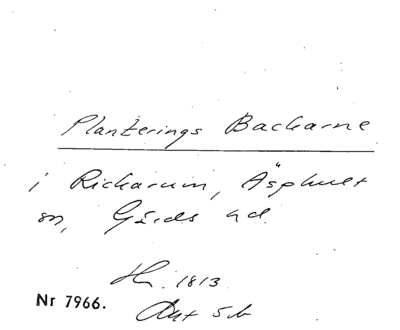 Planterings Backarne
i Rickarum, Äsphult
sn, Gärds hd.
1813
Nr 7966.
Ant 5 b